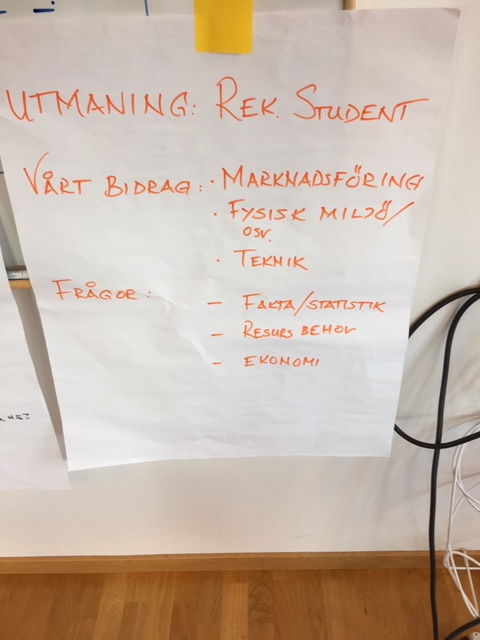 UTMANING: REK. STUDENT
VÅRT BIDRAG: · MARKNADSFÖRING
· FYSISK MILJÖ/
OSV.
· TEKNIK
FRÅGOR: – FAKTA/STATISTIK
– RESURS BEHOV
– EKONOMI